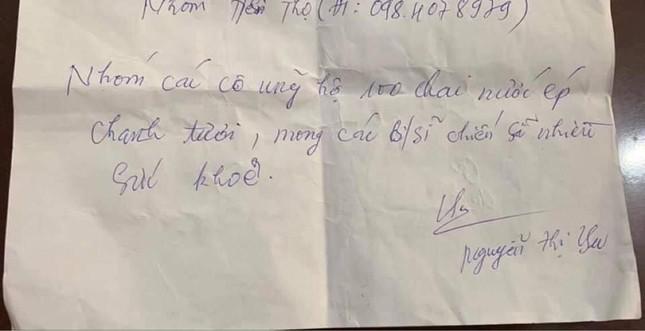 Nhóm Tiến Thọ (đt: 098.4078979)
Nhóm các cô ủng hộ 100 chai nước ép
chanh tươi, mong các B/sĩ chiến sĩ nhiều
sức khoẻ.
Nguyễn Thị